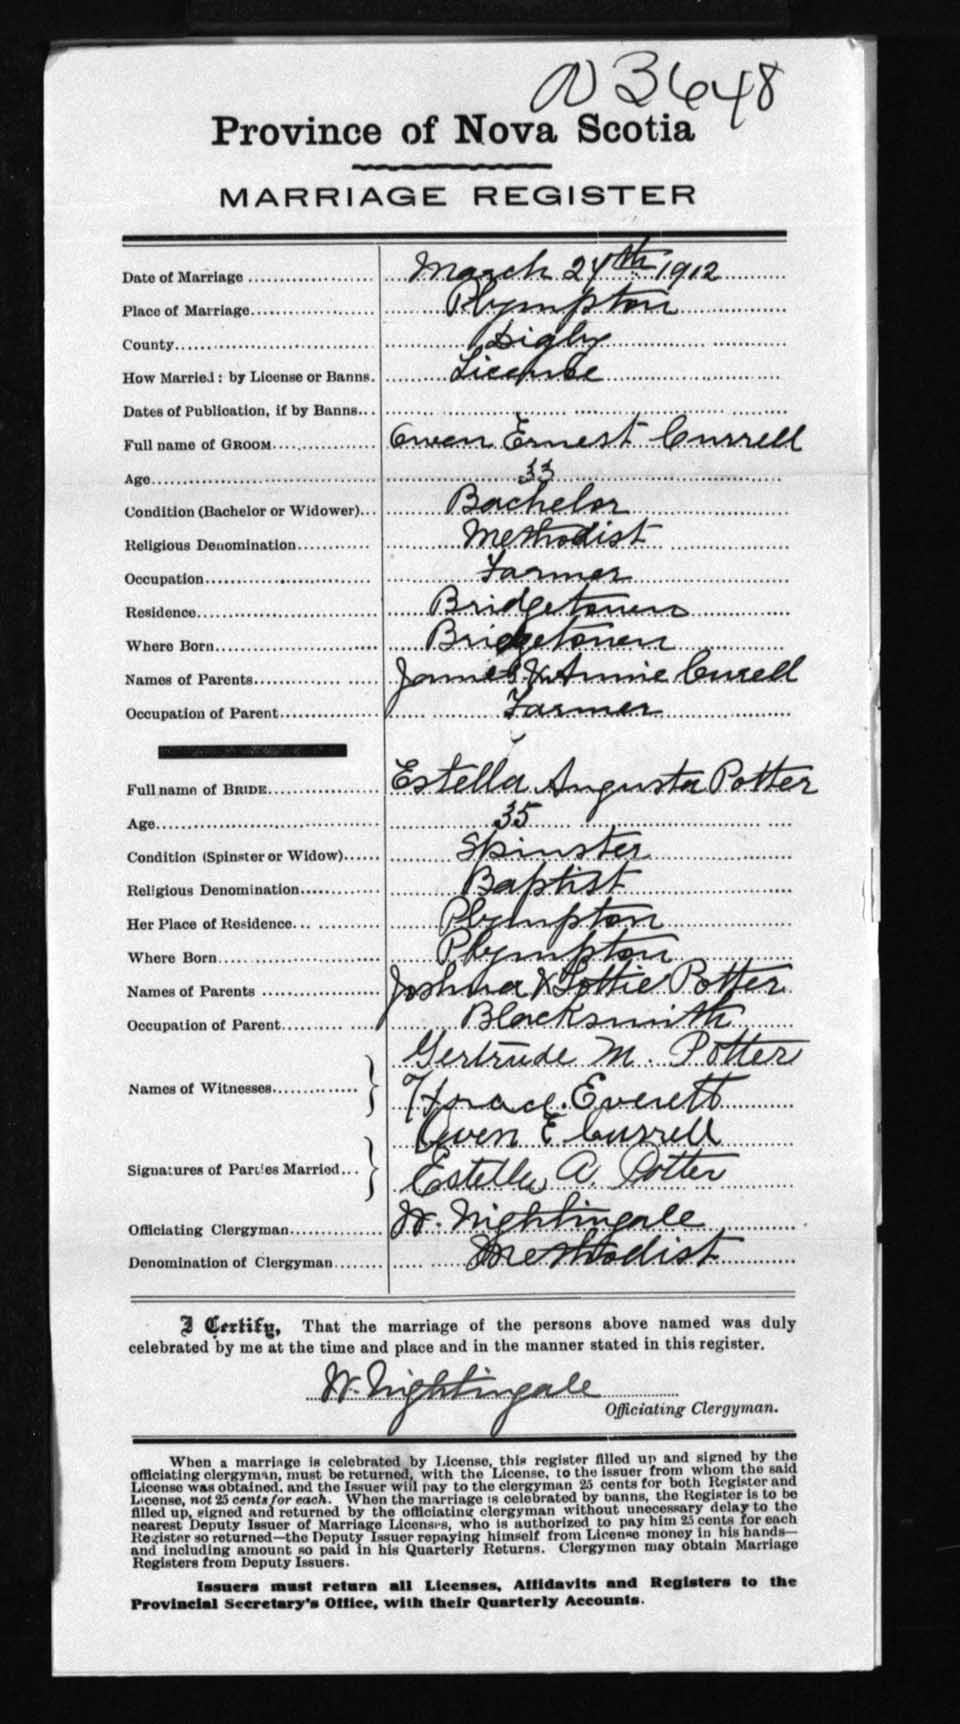 N 3648
Province of Nova Scotia
MARRIAGE REGISTER
Date of Marriage March 24th 1912
Place of Marriage Plympton
County Digby
How Married: by License or Banns. License
Dates of Publication, if by Banns
Full name of GROOM Owen Ernest Currell
Age 33
Condition (Bachelor or Widower) Bachelor
Religious Denomination Methodist
Occupation Farmer
Residence Bridgetown
Where Born Bridgetown
Names of Parents James & Annie Curell
Occupation of Parent Farmer
Full name of BRIDE Estella Augusta Potter
Age 35
Condition (Spinster or Widow) Spinster
Religious Denomination Baptist
Her Place of Residence Plympton
Where Born Plympton
Names of Parents Joshua & Lottie Potter
Occupation of Parent Blacksmith
Gertrude M. Potter
Names of Witnesses
Horace Everett
Owen E Currell
Signatures of Parties Married
Estella A. Potter
Officiating Clergyman W. Nightingale
Denomination of Clergyman Methodist
I Certify, That the marriage of the persons above named was duly
celebrated by me at the time and place and in the manner stated in this register.
W. Nightingale
Officiating Clergyman.
When a marriage is celebrated by License, this register filled up and signed by the
officiating clergyman, must be returned, with the License, to the issuer from whom the said
License was obtained, and the Issuer will pay to the clergyman 25 cents for both Register and
License, not 25 cents for each. When the marriage is celebrated by banns, the Register is to be
filled up, signed and returned by the officiating clergyman without unecessary delay to the
nearest Deputy Issuer of Marriage Licenses, who is authorized to pay him 25 cents for each
Register so returned—the Deputy Issuer repaying himself from License money in his hands—
and including amount so paid in his Quarterly Returns. Clergymen may obtain Marriage
Registers from Deputy Issuers.
Issuers must return all Licenses, Affidavits and Registers to the
Provincial Secretary's Office, with their Quarterly Accounts.